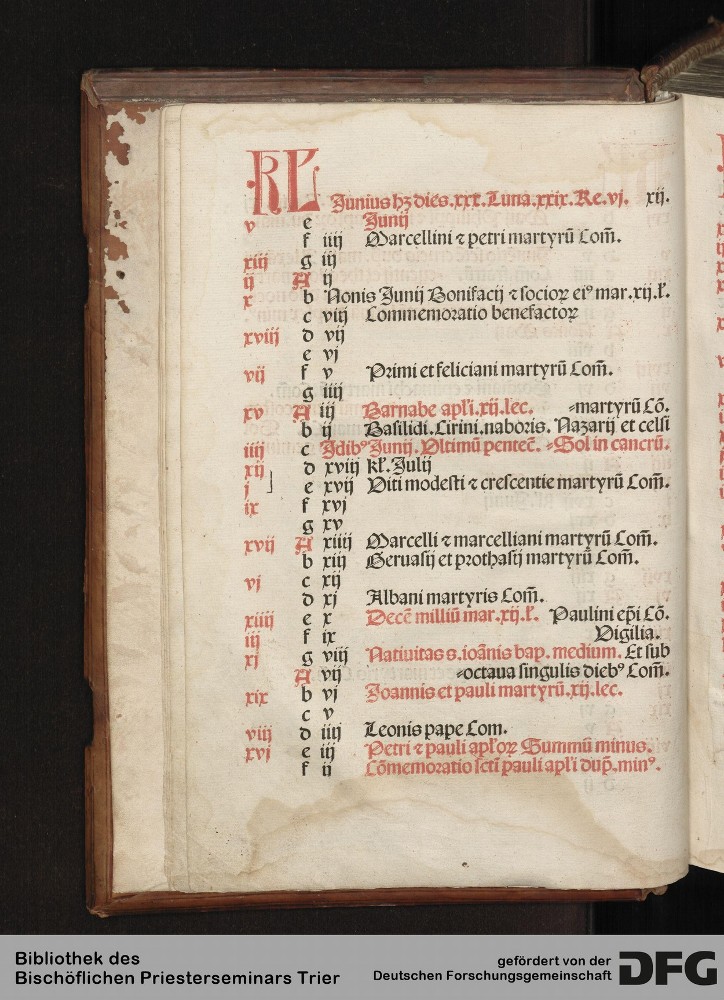 KL Junius hꝫ dies.xxx.Luna.xxix.Re.vj. xij.
v e Junij
f iiij Marcellini ⁊ petri martyrū Com̄.
xiij g iij
ij A ij
x b Nonis Junij Bonifacij ⁊ socioꝝ eiꝰ mar.xij.ł.
c viij Commemoratio benefactoꝝ
xviij d vij
e vj
vij f v Primi et feliciani martyrū Com̄.
g iiij
xv A iij Barnabe apl'i.xij.lec. martyrū Cō.
b ij Basilidi.Cirini.naboris. Nazarij et celsi
iiij c Jdibꝰ Junij.Vltimū pentec̄. Sol in cancrū.
xij d xviij kł.Julij
j e xvij Viti modesti ⁊ crescentie martyrū Com̄.
ix f xvj
g xv
xvij A xiiij Marcelli ⁊ marcelliani martyrū Com̄.
b xiij Geruasij et prothasij martyrū Com̄.
vj c xij
d xj Albani martyris Com̄.
xiiij e x Decē milliū mar.xij.ł. Paulini ep̄i Cō.
iij f ix Vigilia.
xj g viij Natiuitas s.ioānis bap. medium. Et sub
A vij octaua singulis diebꝰ Com̄.
xix b vj Joannis et pauli martyrū.xij.lec.
c v
viij d iiij Leonis pape Com.
xvj e iij Petri ⁊ pauli apl'oꝝ Summū minus.
f ij Cōmemoratio scti pauli apl'i dup̄.minꝰ.
Bibliothek des
Bischöflichen Priesterseminars Trier
gefördert von der
Deutschen Forschungsgemeinschaft
DFG